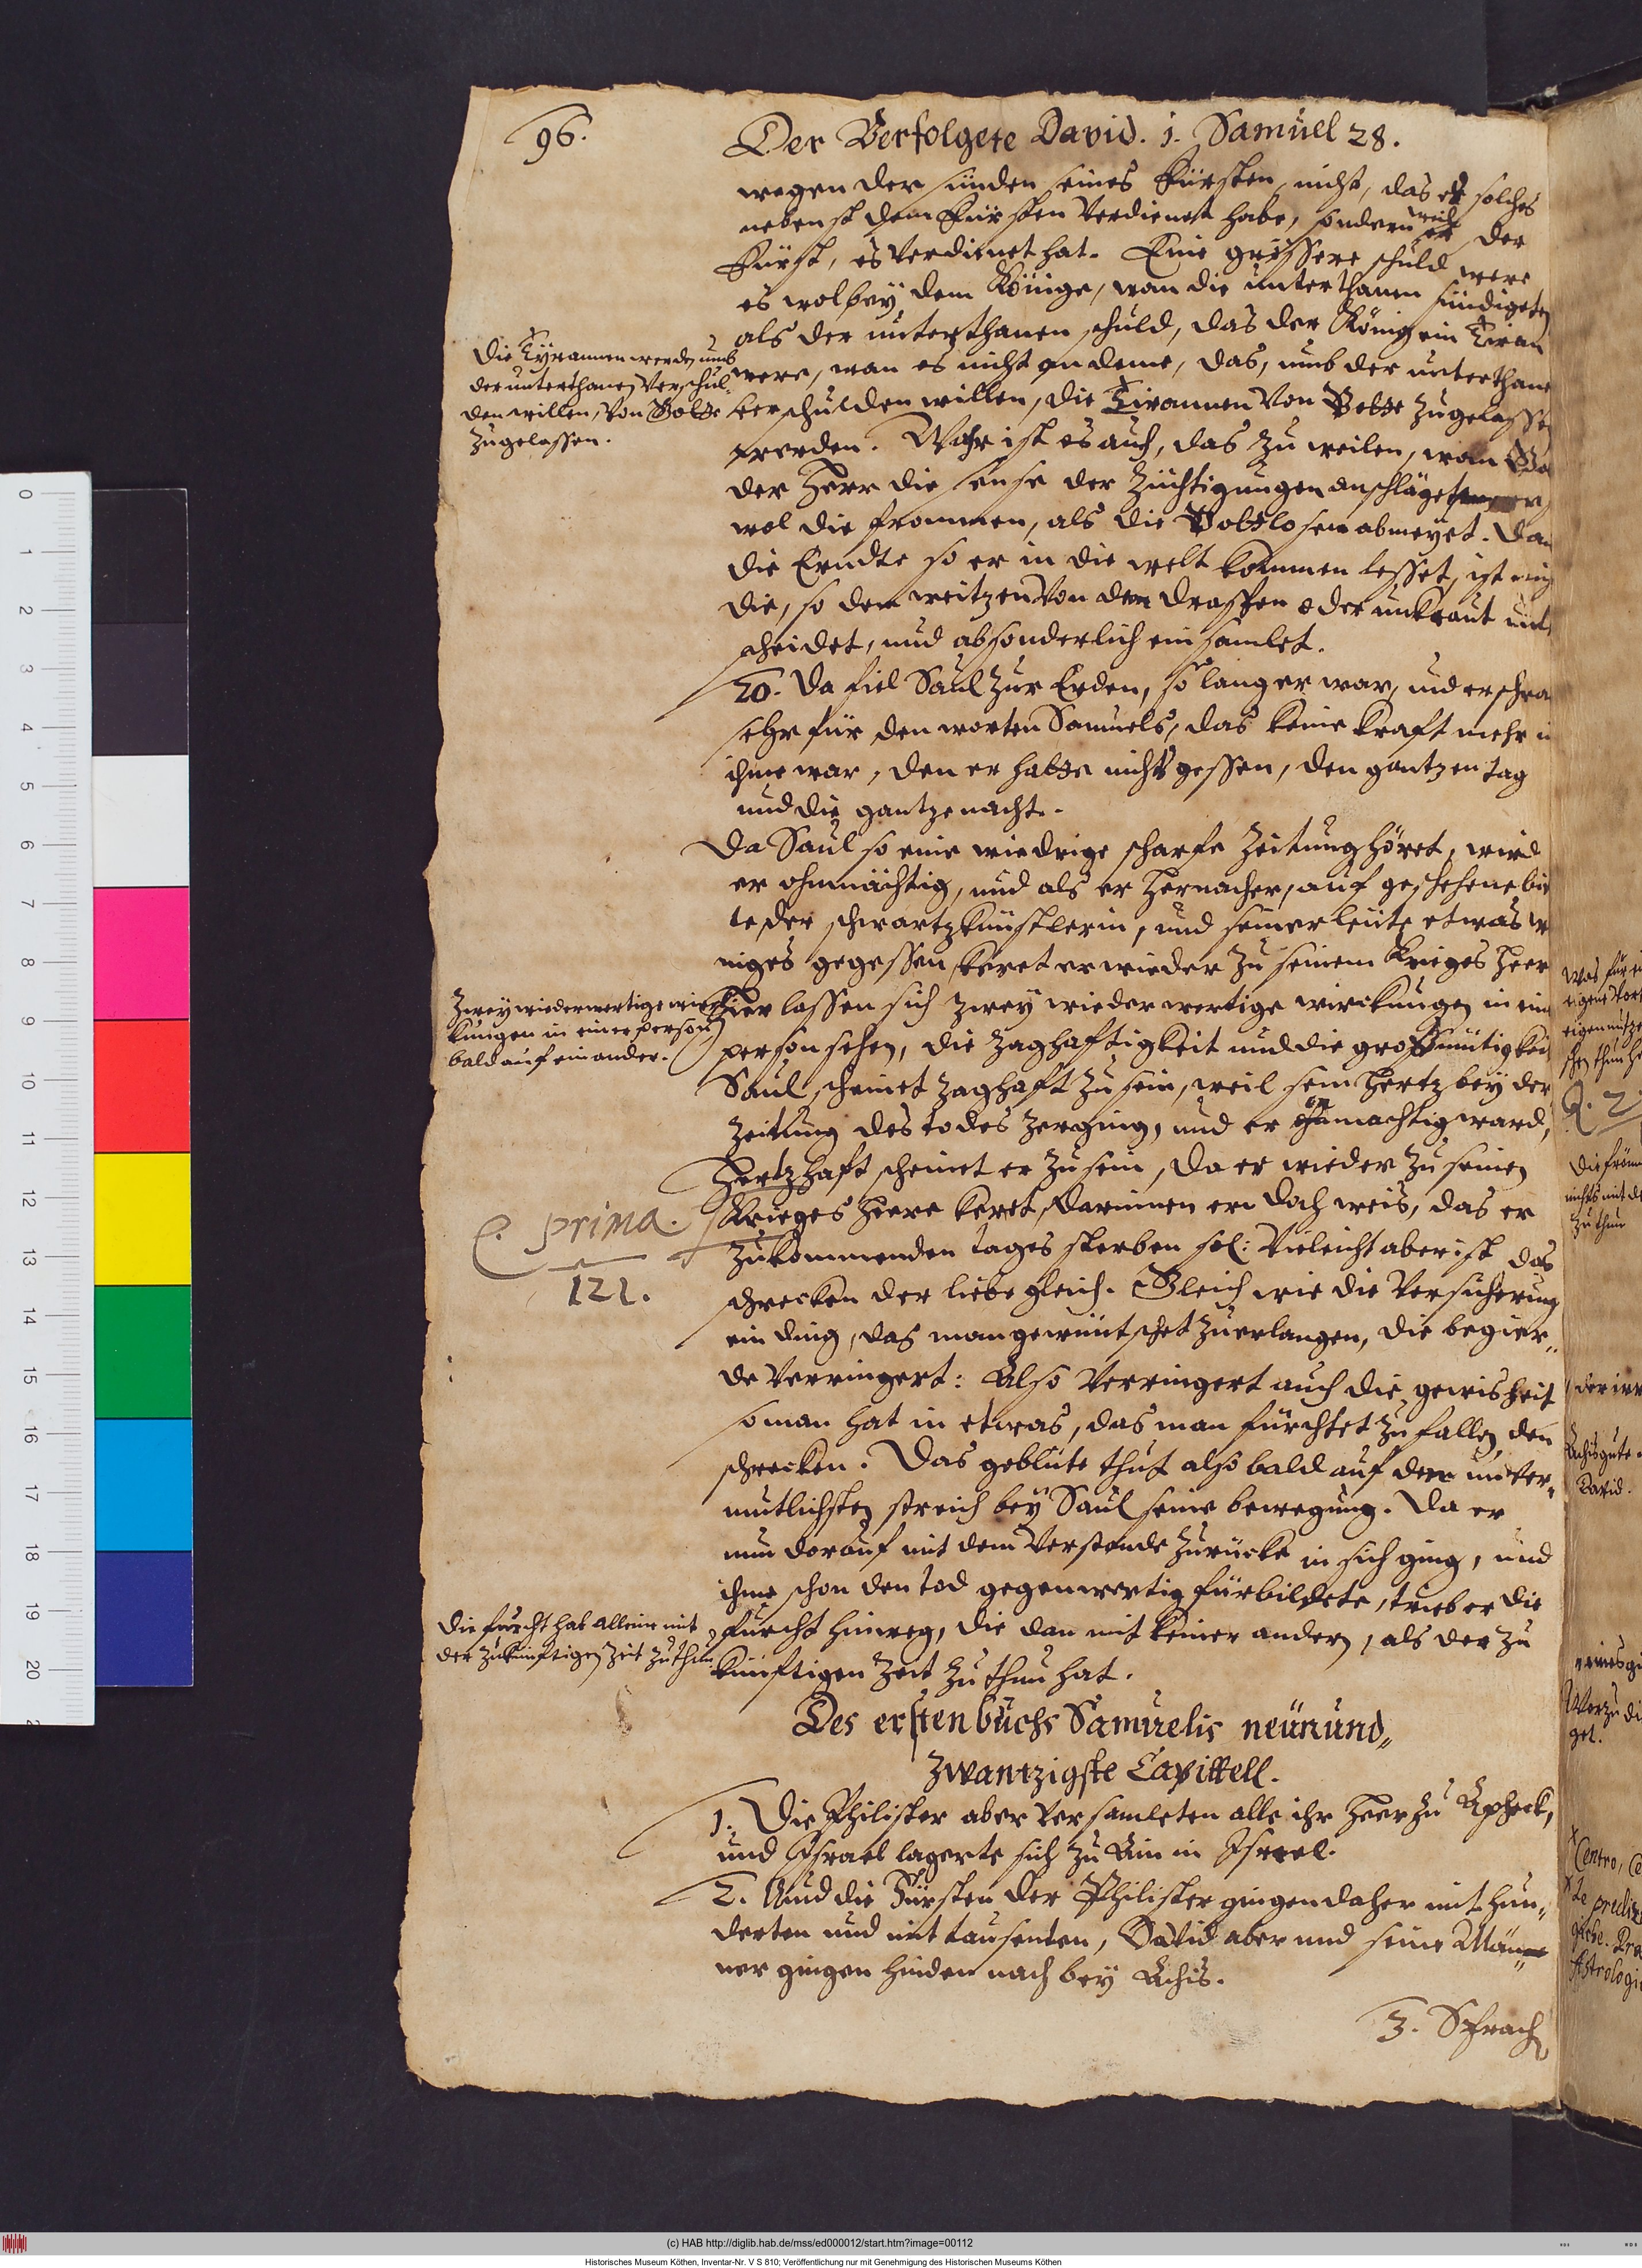 96.
Der Verfolgete David. 1. Samuel 28.
wegen der sünden seines Fürsten, nicht, das er solches
nebenst dem Fürsten verdienet habe, sondern weil der
Fürst, es verdienet hat. Eine grössere schuld were
es wol bey dem Könige, wan die unterthanen sündigeten
als der unterthanen schuld, das der König ein Tiran
were, wan es nicht an deme, das, umb der unterthanen
verschulden willen, die Tirannen von Gotte zugelassen
werden. Wahr ist es auch, das zu weilen, wan Gott
der Herr die sense der züchtigungen anschläget, er
wol die frommen, als die Gottlosen abmeyet. Dan
die Erndte so er in die welt kommen lesset, ist nicht
die, so den weitzen von den drassen oder unkraut unter
scheidet, und absonderlich ein samlet.
20. Da fiel Saul zur Erden, so lang er war, und erschrack
sehr für den worten Samuels, das keine kraft mehr in
ihme war, den er hatte nichts gessen, den gantzen tag
und die gantze nacht.
Da Saul so eine wiedrige scharfe zeitung höret, wird
er ohnmächtig, und als er hernacher, auf geschehene bit
te, der schwartzkünstlerin, und seiner leute etwas we
niges gegessen, keret er wieder zu seinem kriegesheer
Hier lassen sich zwey wiederwertige wirckungen in einer
person sehen, die zaghaftigkeit und die grossmütigkeit
Saul scheinet zaghaft zu sein, weil sein hertz bey der
zeitung des todes zerging, und er ohnmachtig ward,
Hertzhaft scheinet er zu sein, da er wieder zu seinen
Krieges heere keret, darinnen er doch weis, das er
zukommenden tages sterben sol: Vieleicht aber ist das
schrecken der liebe gleich. Gleich wie die versicherung
ein ding, das man gewüntschet zuerlangen, die begier„
de verringert: Also verringert auch die gewisheit
so man hat in etwas, das man fürchtet zu fallen, den
schrecken. Das geblüte thut also bald auf den unver„
mutlichsten streich bey Saul seine bewegung. Da er
nun darauf mit dem verstande zurücke in sich ging, und
ihme schon den tod gegenwertig fürbildete, trieb er die
furcht hinweg, die dan mit keiner andern, als der zu
künftigen zeit zu thun hat.
Des ersten buchs Samuelis neünund„
zwantzigste Capittell.
1. Die Philister aber versamleten alle ihr heer zu Apheck,
und Israel lagerte sich zu Ain in Isreel.
2. Und die Fürsten der Philister gingen daher mit hun„
derten und mit tausenten, David aber und seine Män„
ner gingen hinden nach bey Achis.
3. Sprach
Die Tyrannen werden umb
der unterthanen verschul„
den willen, von Gotte
zugelassen.
Zwey wiederwertige wirc
kungen in einer person
bald auf ein ander.
C. prima.
121.
Die furcht hat alleine mit
der zukünftigen zeit zu thun.
Achis gute
David.
Centro,
Astrologi
0
1
2
3
4
5
6
7
8
9
10
11
12
13
14
15
16
17
18
19
20
(c) HAB http://diglib.hab.de/mss/ed000012/start.htm?image=00112
Historisches Museum Köthen, Inventar-Nr. V S 810; Veröffentlichung nur mit Genehmigung des Historischen Museums Köthen